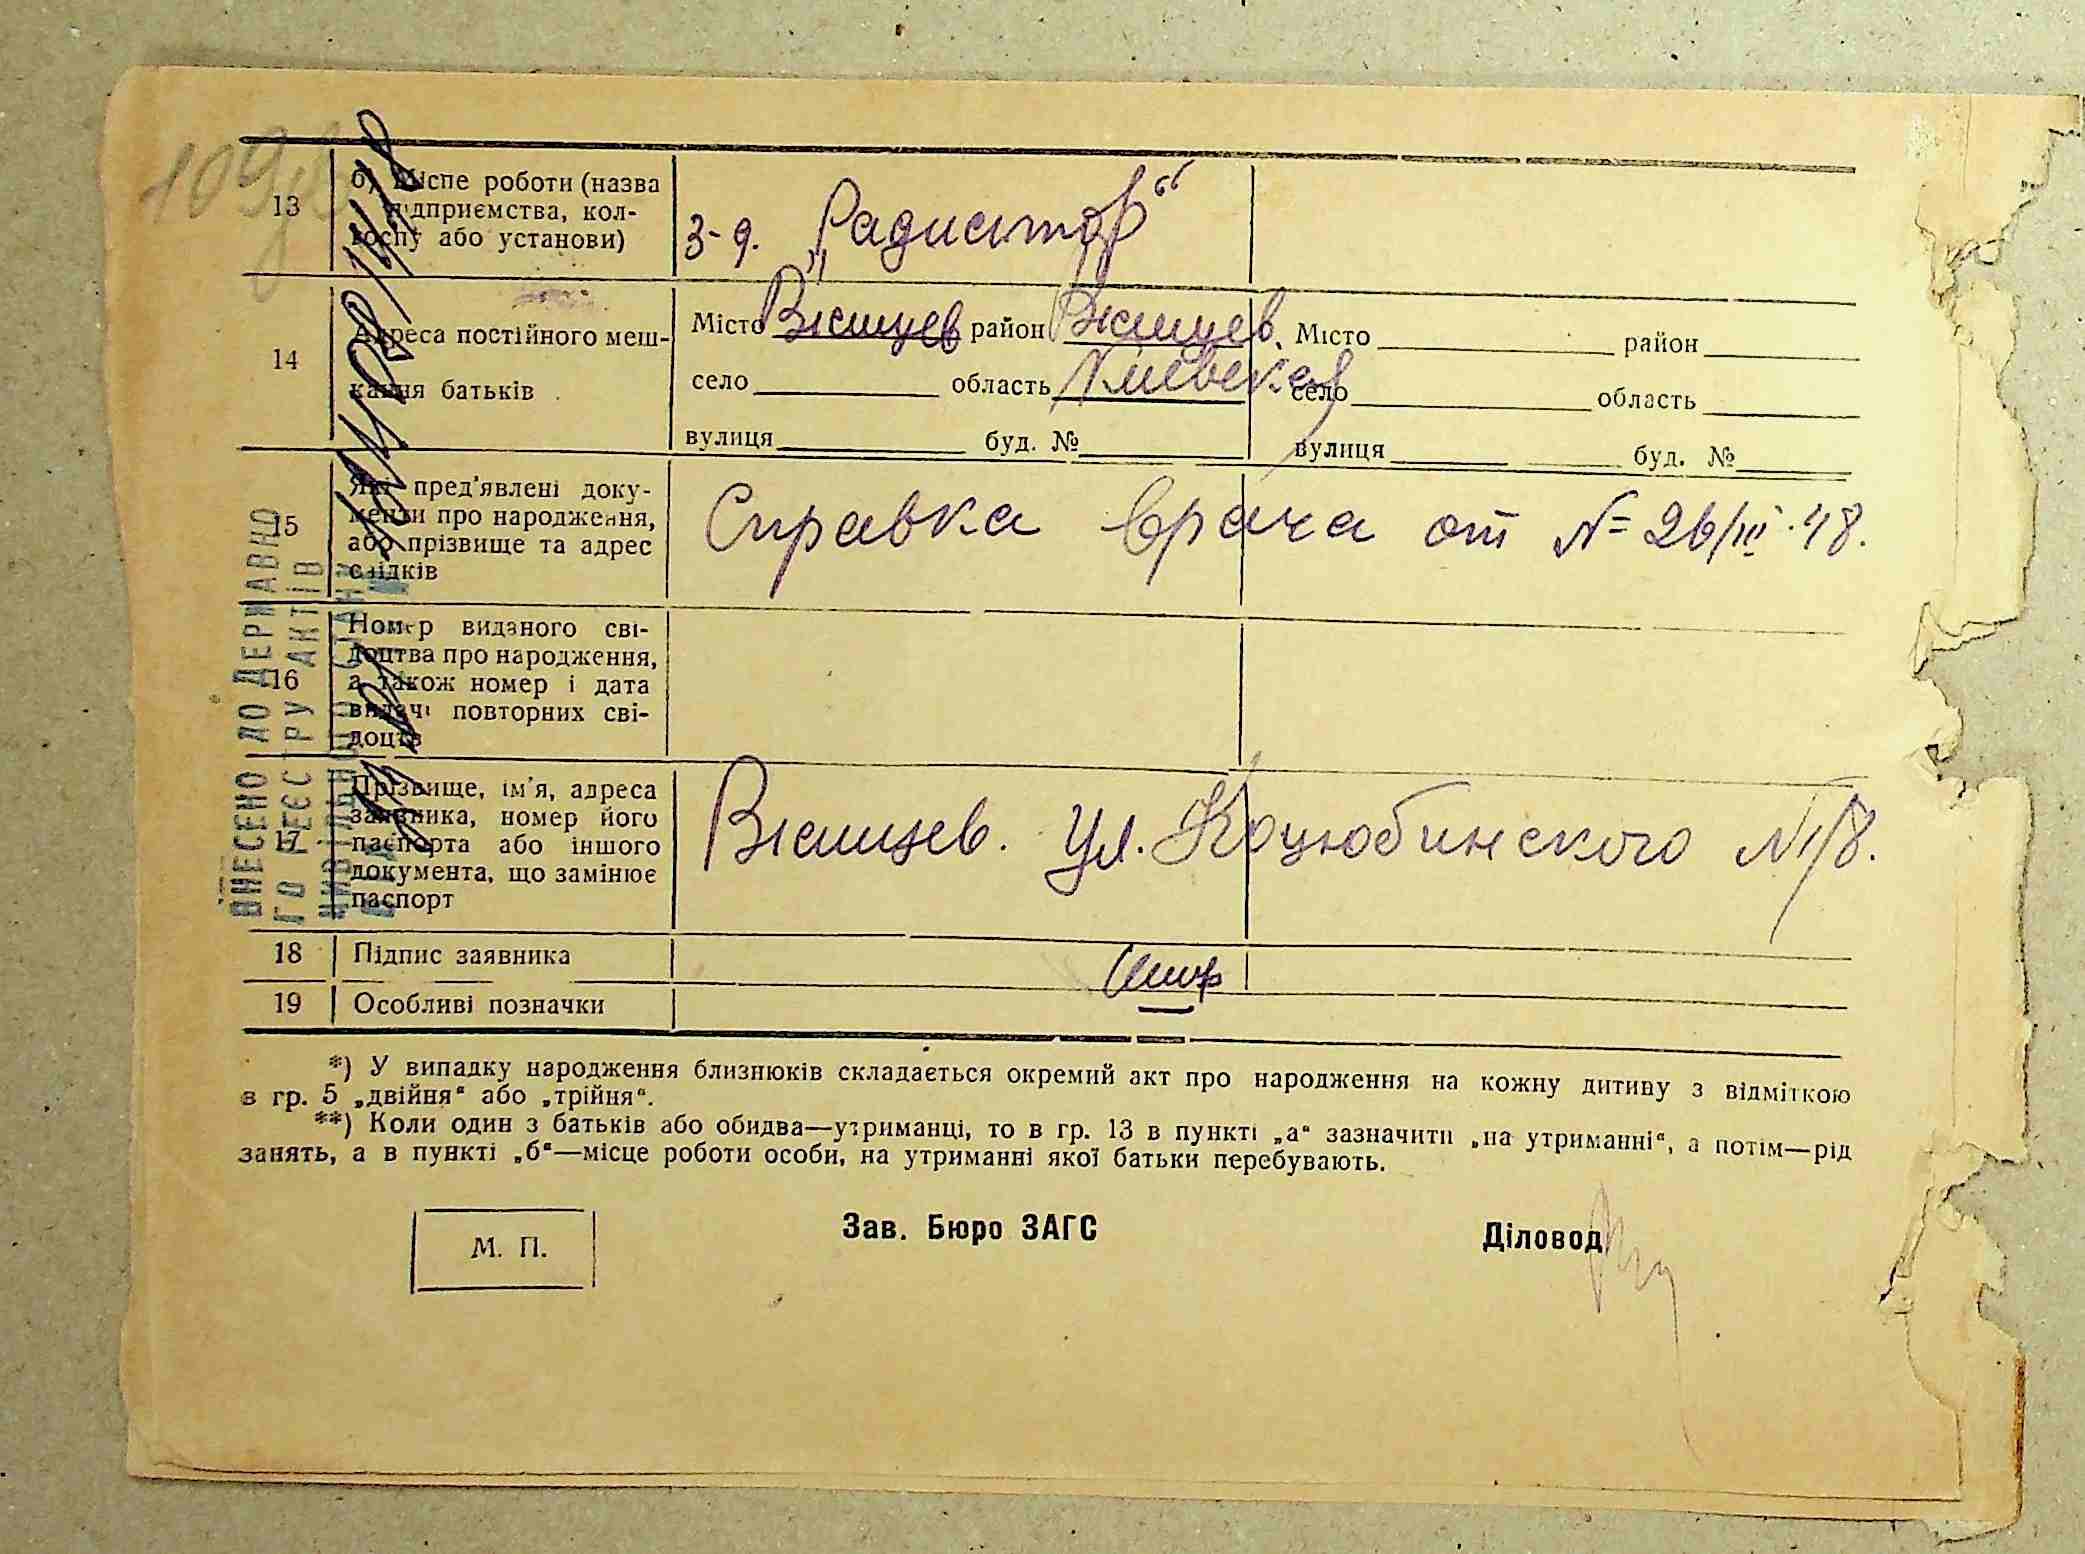 109
13
б) Місце роботи (назва
підприємства, кол-
госпу або установи)
З-д. „Радиатор“
14
Адреса постійного меш-
кання батьків
Місто район
село область
вулиця буд. №
Місто район
село область Киевская
вулиця буд. №
15
Які пред'явлені доку-
менти про народження,
або прізвище та адрес
свідків
Справка врача от N= 26/III·48.
16
Номер виданого сві-
доцтва про народження,
а також номер і дата
видачі повторних сві-
доцтв
17
Прізвище, ім'я, адреса
заявника, номер його
паспорта або іншого
документа, що замінює
паспорт
ул. Коцюбинского №
18 Підпис заявника
19 Особливі позначки
*) У випадку народження близнюків складається окремий акт про народження на кожну дитину з відміткою
в гр. 5 „двійня“ або „трійня“.
**) Коли один з батьків або обидва—утриманці, то в гр. 13 в пункті „а“ зазначити „на утриманні“, а потім—рід
занять, а в пункті „б“—місце роботи особи, на утриманні якої батьки перебувають.
М. П.
Зав. Бюро ЗАГС
Діловод
ВНЕСЕНО ДО ДЕРЖАВНО
ГО РЕЄСТРУ АКТІВ
ЦИВІЛЬНОГО СТАНУ